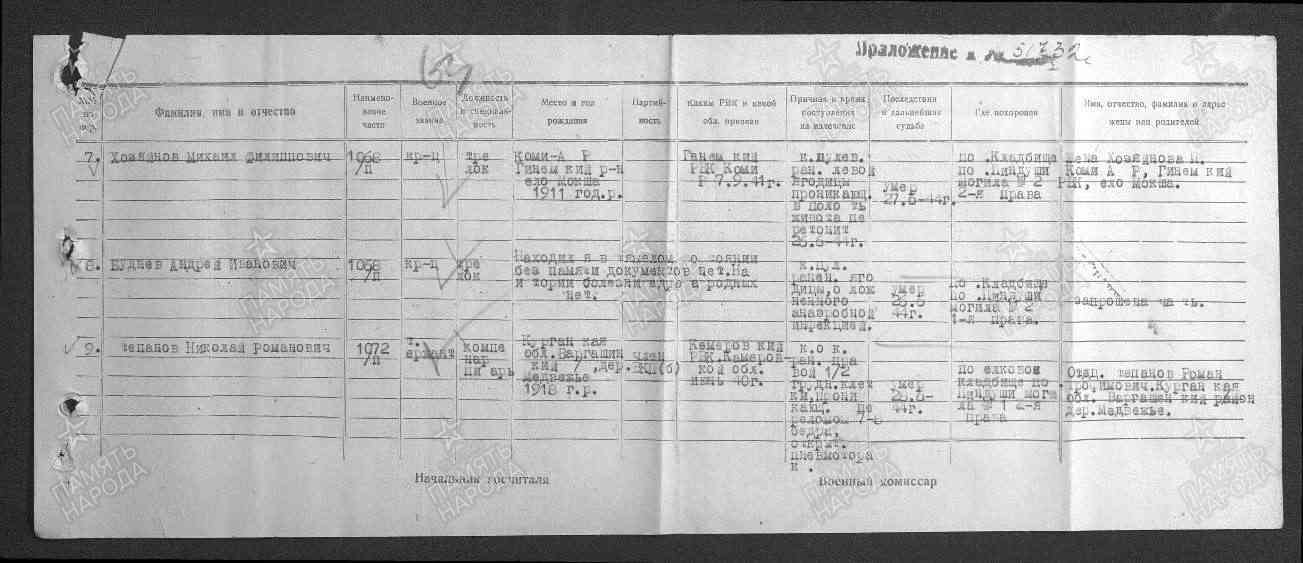 Приложение к 51732
№№ по пор.
Фамилия, имя и отчество
Наименование части
Военное звание
Должность и специальность
Место и год рождения
Партийность
Каким РВК и какой обл. призван
Причина и время поступления на излечение
Последствия и дальнейшая судьба
Где похоронен
Имя, отчество, фамилия и адрес жены или родителей
7.
Хозяинов Михаил Филиппович
1068
/п
кр-ц
тре
лок
Коми-А Р
Гинем кий р-н
ело мокша
1911 год.р.
Ганем кий
РВК Коми
Р 7.9.41г.
к.пулев.
ран. левой
ягодицы
проникающ.
в поло ть
живота пе
ретонит
26.6-44г.
умер
27.6-44г.
по .Кладбище
по .Пиндуши
могила № 2
2-я права
жена Хозяинова П.
Коми А Р, Гинем кий
РВК, ело Мокша.
8.
Буднев Андрей Иванович
1068
/п
кр-ц
тре
лок
Находил я в тяжелом о тоянии
без памяти документов нет.На
и тории болезни адре а родных
нет.
к.пул.
ранен. яго
дицы,о лож
ненного
анаэробной
инфекцией.
умер
28.6
44г.
по .Кладбище
по .Пиндуши
могила № 2
1-я права.
запрошена ча ть.
9.
тепанов Николай Романович
1072
/п
т.
ержант
компе
нар
пи арь
Курган кая
обл.Варгашин
кий / ,дер.
Медвежье
1918 г.р.
член
ВКП(б)
Кемеров кий
РВК.Кемеров-
кой обл.
июнь 40г.
к.о к.
ран. пра
вой 1/2
грудн.клет
ки,прони
кающ. пе
реломом 7-
ребра,
открыт.
пневмотора
к .
умер
28.6-
44г.
по елковое
кладбище по .
Пиндуши моги
ла № 1 2-я
права
Отец. тепанов Роман
Трофимович.Курган кая
обл. Варгашен кий район
дер.Медвежье.
Начальник госпиталя
Военный комиссар
ПАМЯТЬ НАРОДА